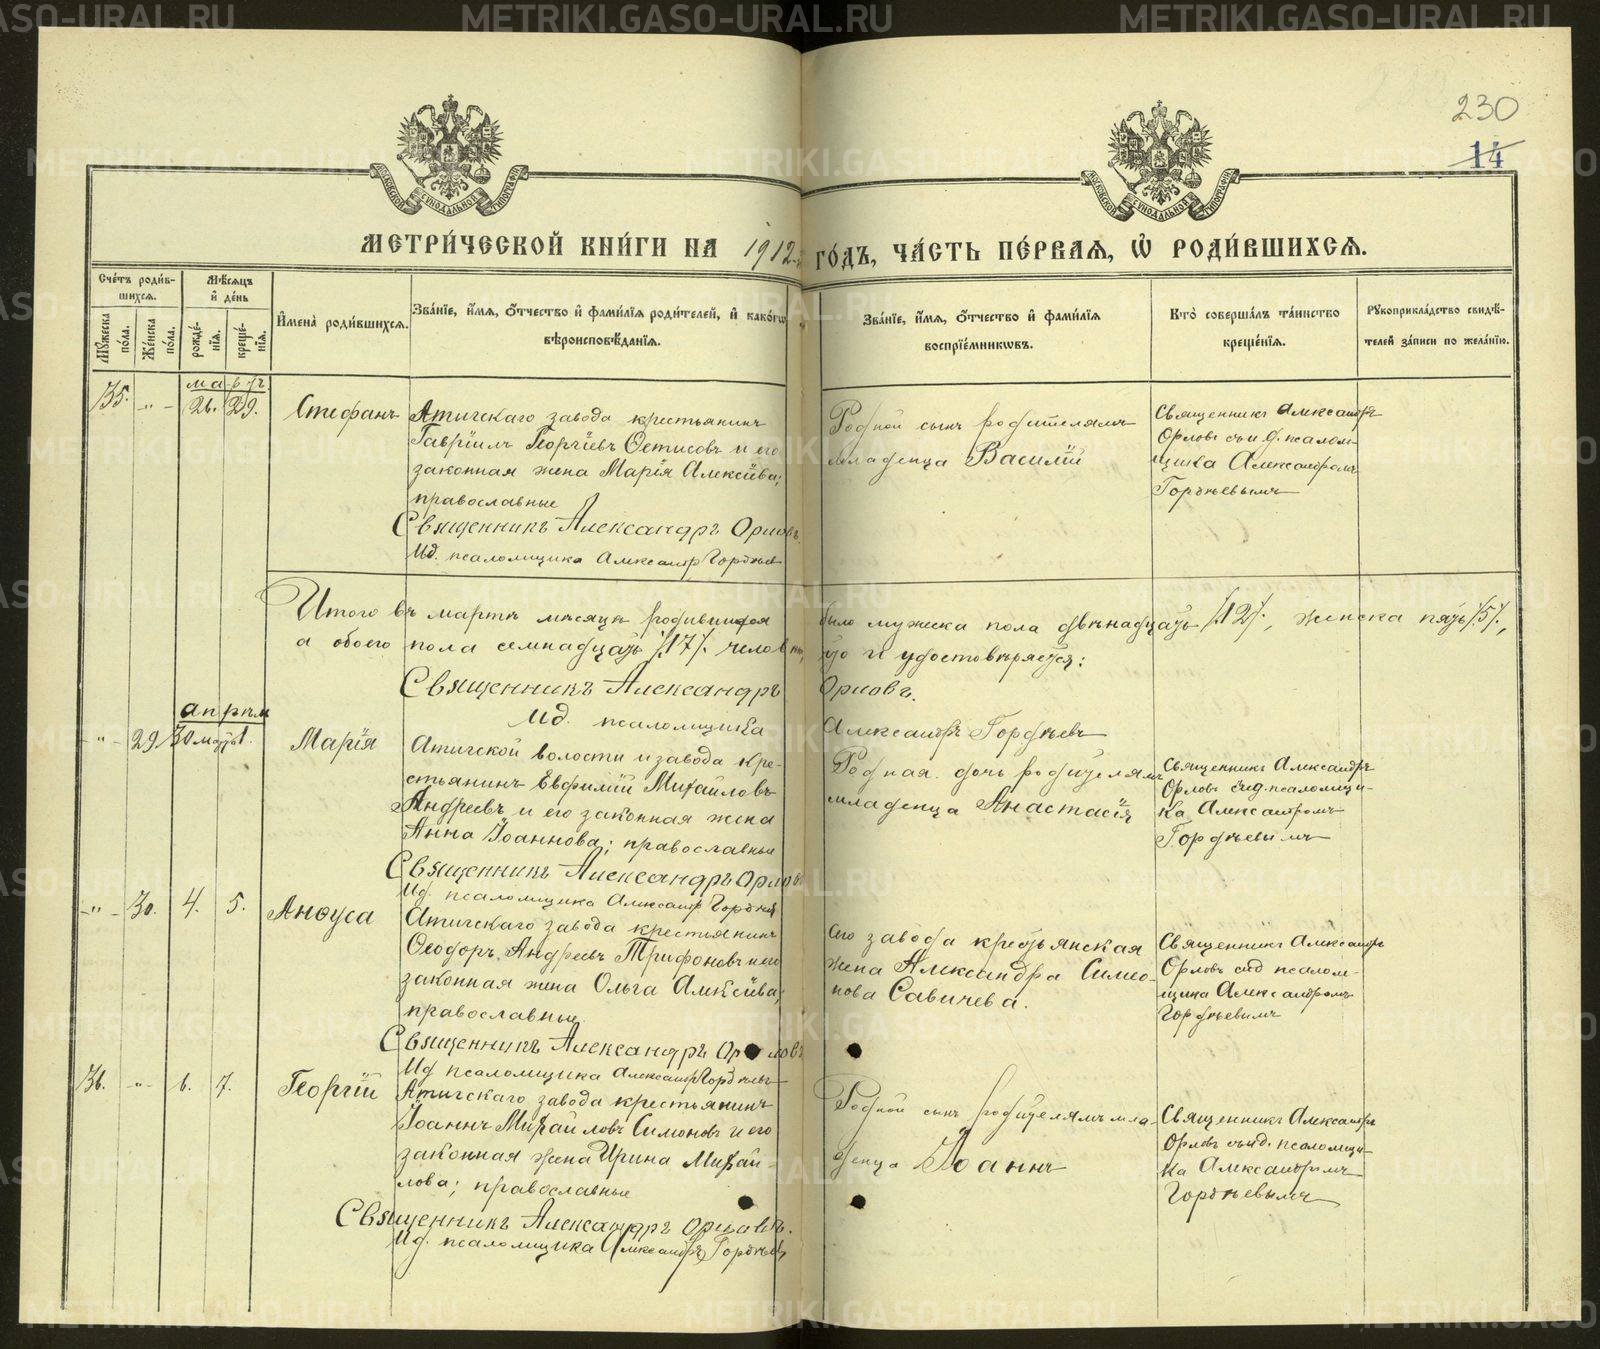 230
14
МОСКОВСКОЙ СѴНОДАЛЬНОЙ ТИПОГРАФІИ
МОСКОВСКОЙ СѴНОДАЛЬНОЙ ТИПОГРАФІИ
МЕТРИ́ЧЕСКОЙ КНИ́ГИ НА 1912 ГО́ДЪ, ЧА́СТЬ ПЕ́РВАЯ, Ѡ҆ РОДИ́ВШИХСЯ.
Сче́тъ роди́в-
шихся.
Му́жеска
по́ла.
Же́нска
по́ла.
Мѣ́сяцъ
и҆ де́нь
рожде́-
нія.
креще́-
нія.
И҆мена̀ роди́вшихся.
Зва́ніе, и҆́мя, ѻ҆́тчество и҆ фами́лія роди́телей, и҆ како́гѡ
вѣроисповѣ́данія.
Зва́ніе, и҆́мя, ѻ҆́тчество и҆ фами́лія
воспріе́мниковъ.
Кто̀ соверша́лъ та́инство
креще́нія.
Рукоприкла́дство свидѣ́-
телей за́писи по жела́нію.
мартъ
35. -"- 26. 29. Стефанъ
Атигскаго завода крестьянинъ
Гавріилъ Георгіевъ Ѳетисовъ и его
законная жена Марія Алексіева;
православные
Священникъ Александръ Орловъ.
Ид. псаломщика Александръ Гордѣевъ
Родной сынъ родителямъ
младенца Василій
Священникъ Александръ
Орловъ съ и.д. псалом-
щика Александромъ
Гордѣевымъ
Итого въ мартѣ мѣсяцѣ родившихся было мужеска пола двѣнадцать /12/, женска пять /5/,
а обоего пола семнадцать /17/ человѣкъ, что и удостовѣряется:
Священникъ Александръ Орловъ.
Ид. псаломщика Александръ Гордѣевъ
апрѣль
-"- 29 30 марта 1. Марія
Атигской волости и завода кре-
стьянинъ Евфимій Михаиловъ
Андреевъ и его законная жена
Анна Іоаннова; православные
Священникъ Александръ Орловъ
Ид. псаломщика Александръ Гордѣевъ
Родная дочь родителямъ
младенца Анастасія
Священникъ Александръ
Орловъ съ ид. псаломщи-
ка Александромъ
Гордѣевымъ
-"- 30. 4. 5. Анѳуса
Атигскаго завода крестьянинъ
Ѳеодоръ Андреевъ Трифоновъ и его
законная жена Ольга Алексіева;
православные
Священникъ Александръ Орловъ
Ид псаломщика Александръ Гордѣевъ
Сего завода крестьянская
жена Александра Симео-
нова Савичева.
Священникъ Александръ
Орловъ съ ид псалом-
щика Александромъ
Гордѣевымъ
36. -"- 6. 7. Георгій
Атигскаго завода крестьянинъ
Іоаннъ Михаиловъ Симоновъ и его
законная жена Ирина Михаи-
лова; православные
Священникъ Александръ Орловъ.
Ид. псаломщика Александръ Гордѣевъ
Родной сынъ родителямъ мла-
денца Іоаннъ
Священникъ Александръ
Орловъ съ ид. псаломщи-
ка Александромъ
Гордѣевымъ
METRIKI.GASO-URAL.RU